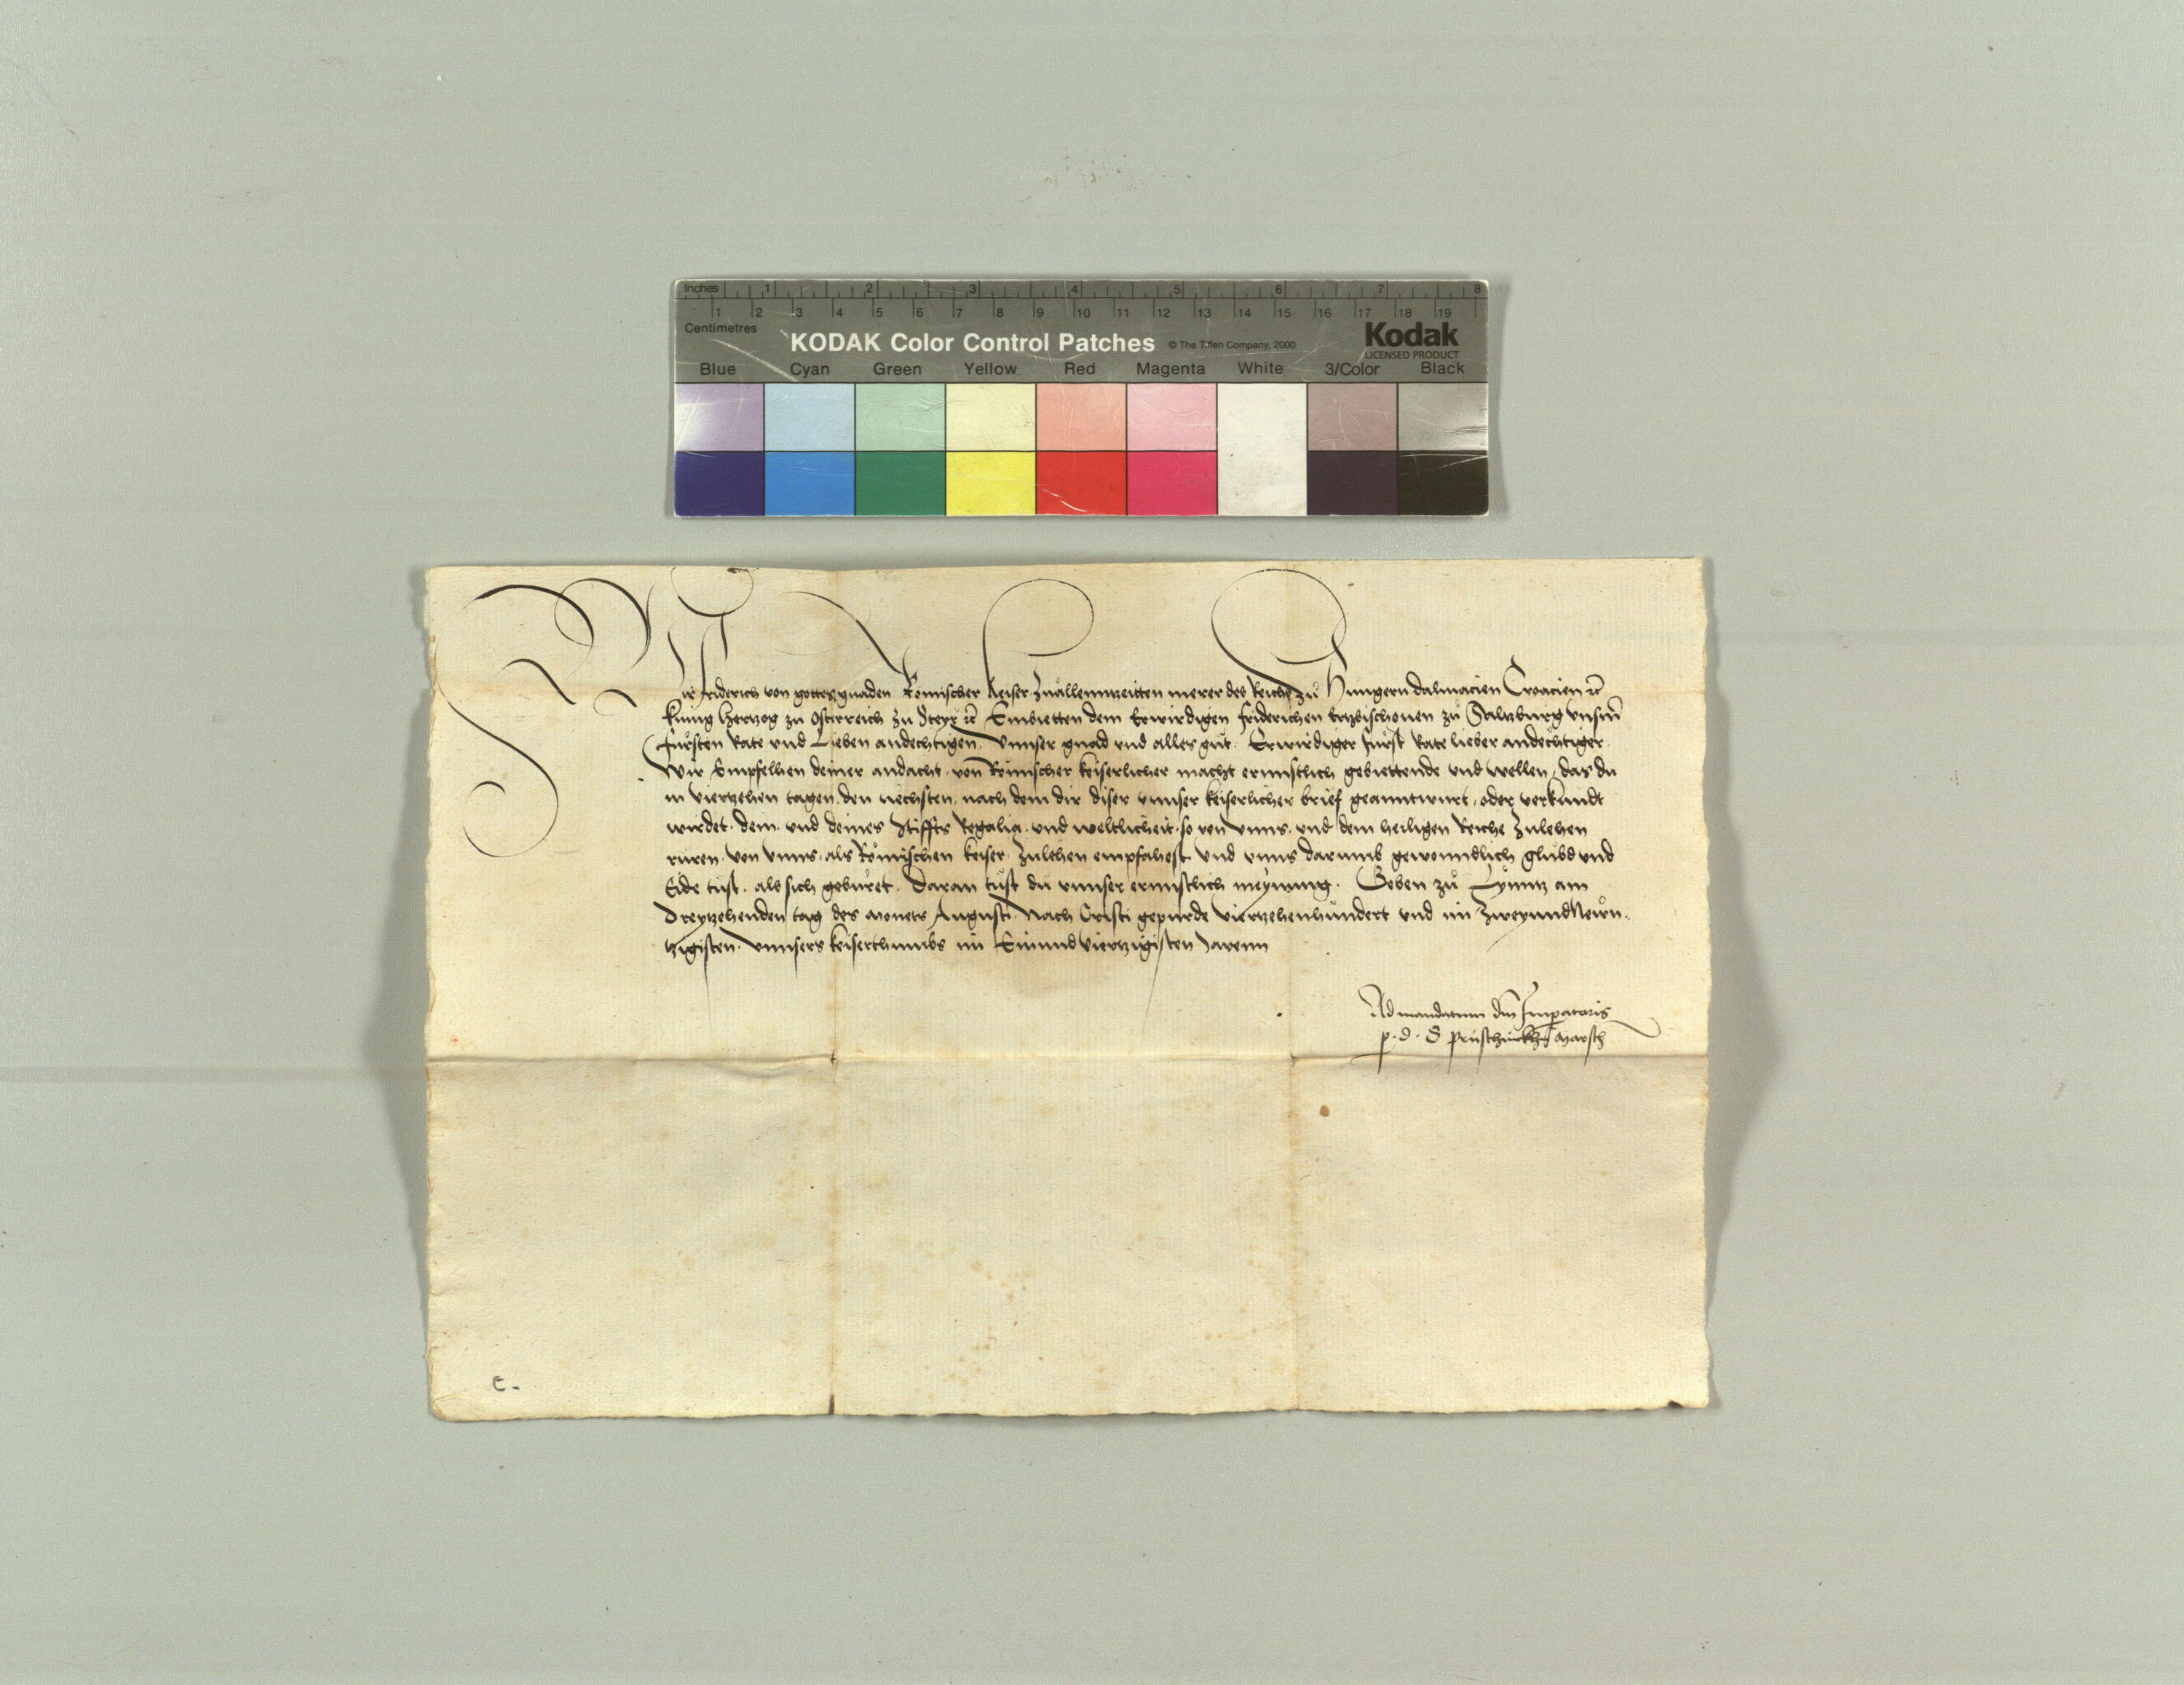 Inches 1 2 3 4 5 6 7 8
1 2 3 4 5 6 7 8 9 10 11 12 13 14 15 16 17 18 19
Centimetres
KODAK Color Control Patches © The Tiffen Company, 2000 Kodak
LICENSED PRODUCT
Blue Cyan Green Yellow Red Magenta White 3/Color Black
Wir Friderich von gottes gnaden Römischer Keiser Zuallenntzeitten merer des Reichs zů Hungern Dalmacien Croacien ꝛc̄
kunig Hertzog zu Osterreich zu Steyr ꝛc̄ Embietten dem Erwirdigen Friderichen Ertzbischouen zů Saltzburg vnsm̄
fürsten Rate vnd Lieben andechtigen. Vnnser gnad vnd alles gůt. Erwirdiger Fürst Rate lieber andechtiger.
Wir Empfelhen deiner andacht. von Römischer keiserlicher macht ernnstlich gebiettende vnd wellen, das du
in viertzehen tagen. den nechsten, nach dem dir diser vnnser keiserlicher brief geanntwurt, oder verkundt
wirdet. dein. vnd deines Stiffts Regalia. vnd weltlicheit. so von vnns. vnd dem heiligen Reiche zulehen
rüren. von vnns. als Römischen keiser. zulehen empfahest vnd vnns darumb gewonndlich glübd vnd
Eide tüst. als sich gebüret. Daran tůst du vnnser ernnstlich meynung. Geben zů Lynntz am
Dreytzehenden tag des Monets Augusti. Nach Cristi gepurde viertzehenhundert vnd im zweyundNewn-
tzigisten. vnnsers keiserthumbs im Einundviertzigisten Jarenn
Ad mandatum dn̄i Imperatoris
p. d. S Pruschinckh Marsch
c.